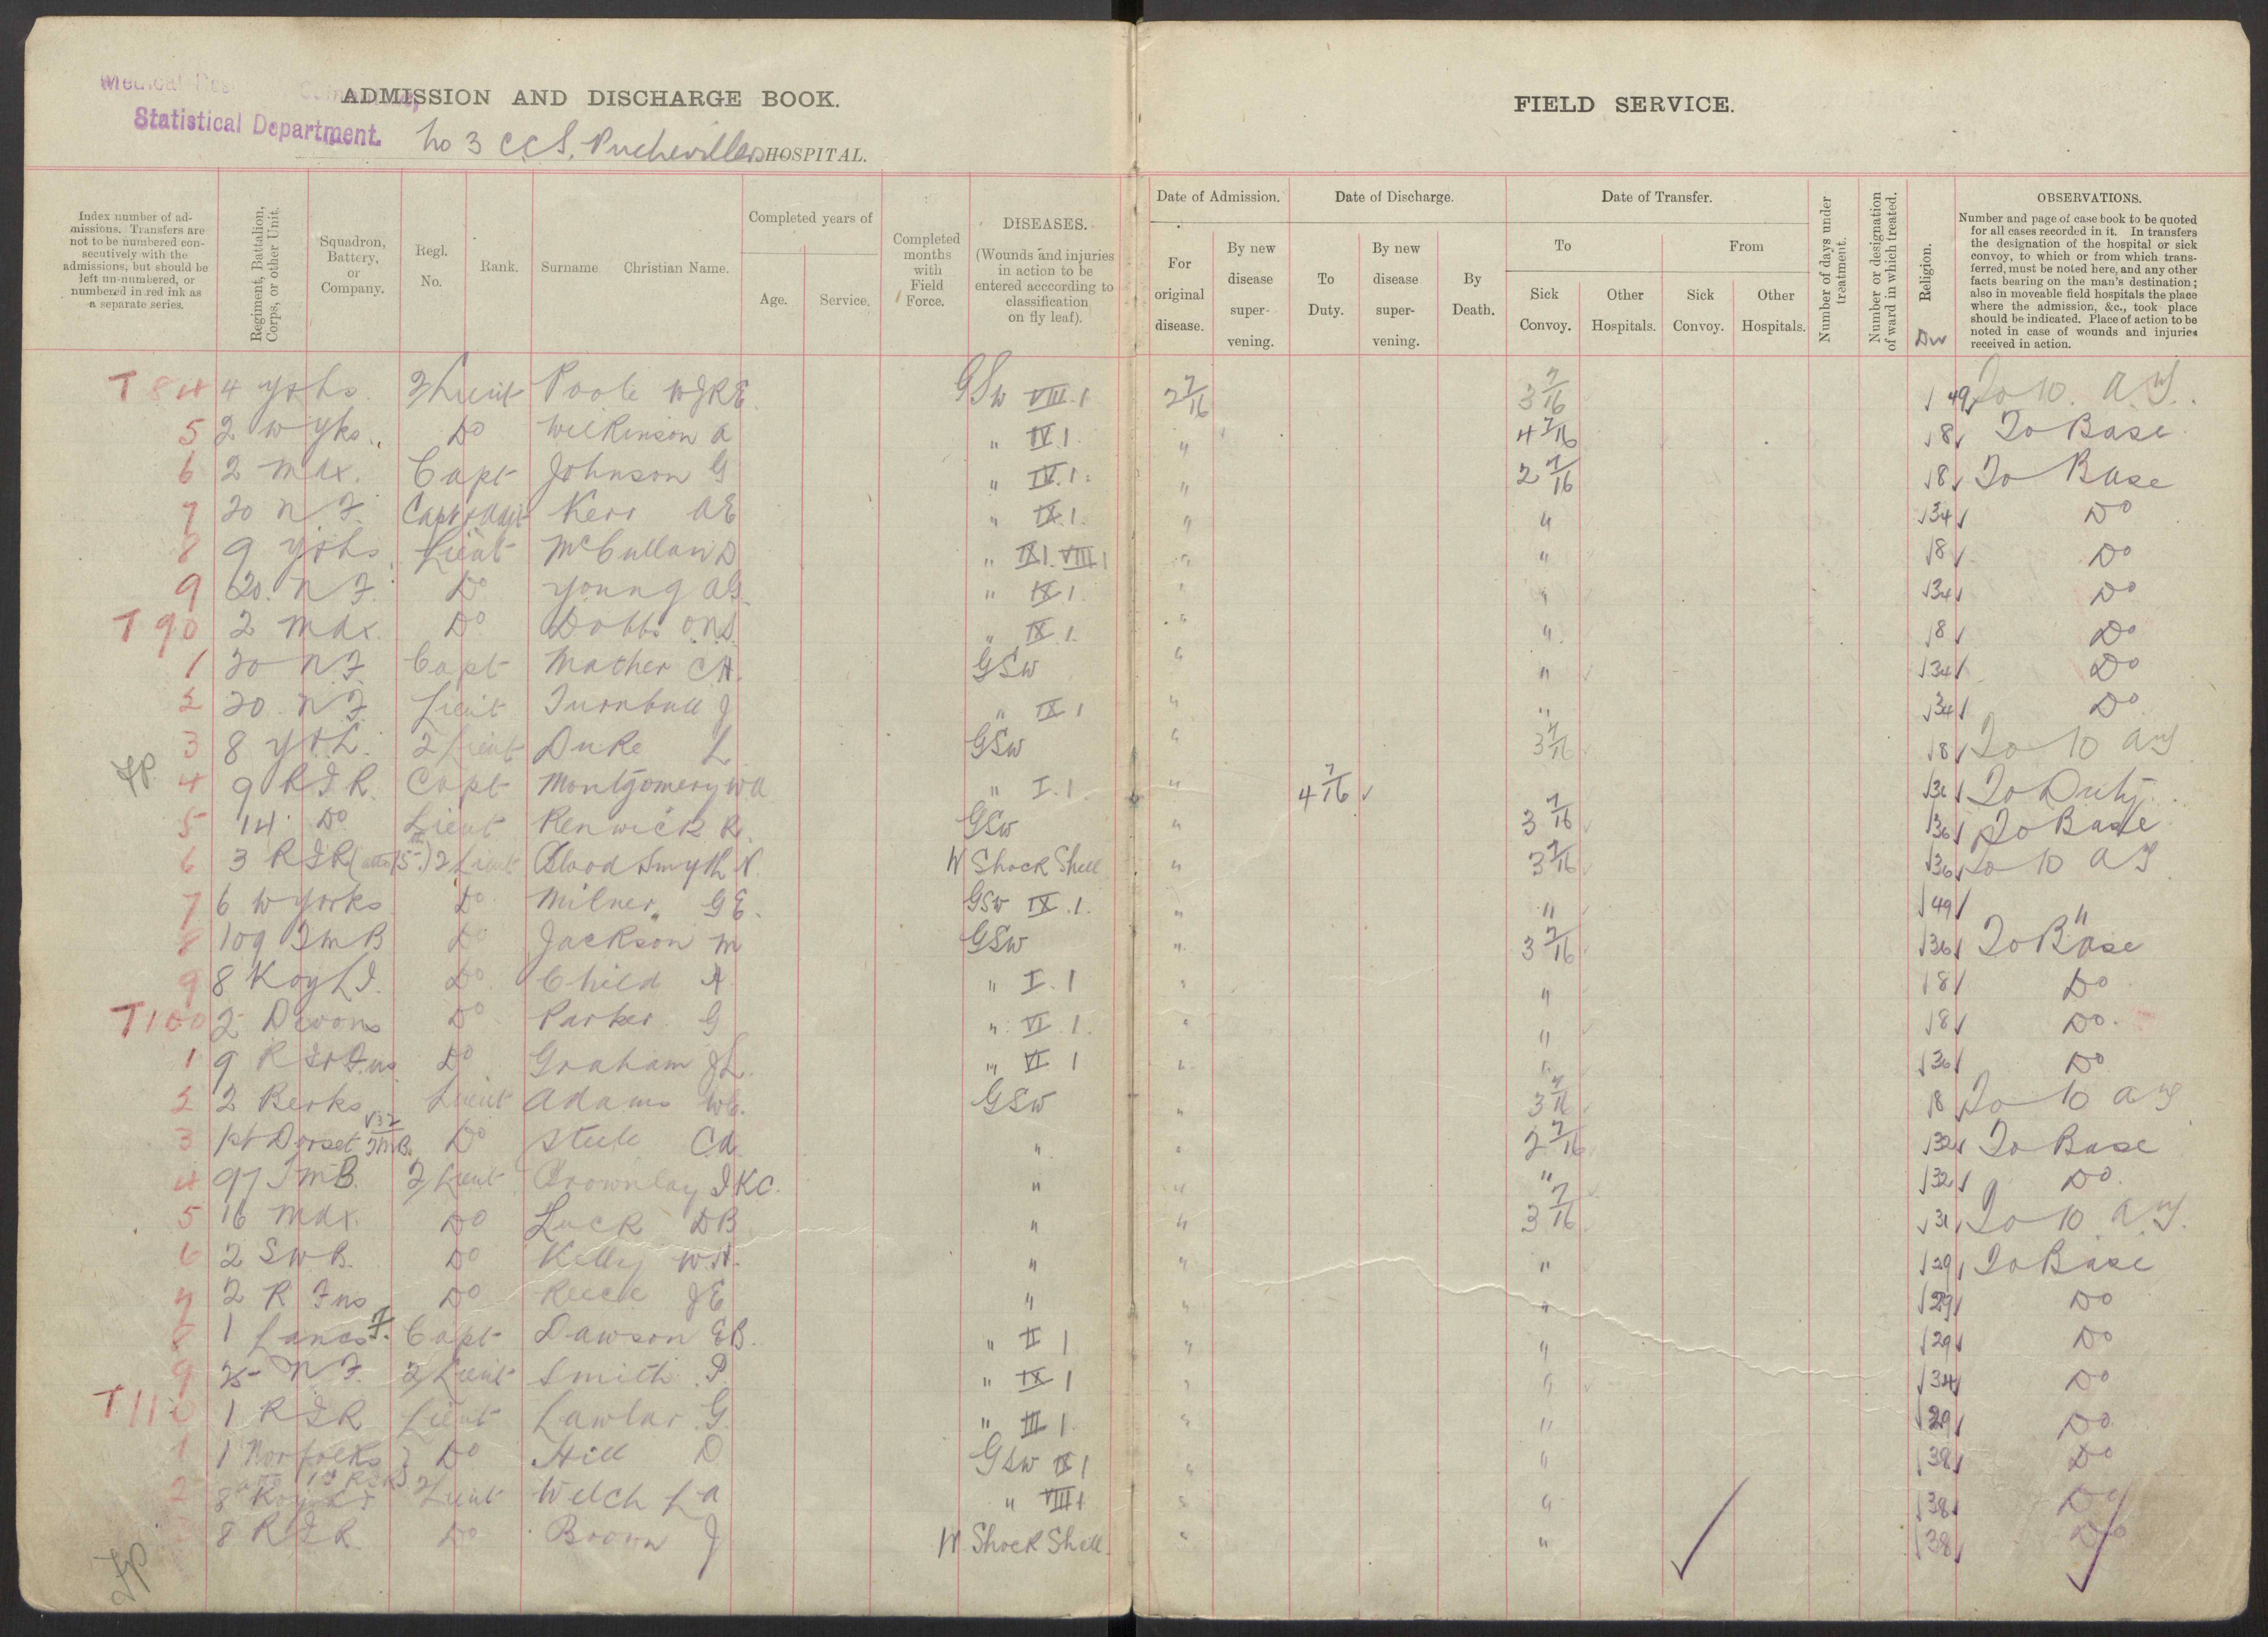 Medical
Statistical Department.
ADMISSION AND DISCHARGE BOOK.
No 3 CCS, Puchevillers HOSPITAL.
FIELD SERVICE.
Index number of admissions. Transfers are not to be numbered consecutively with the admissions, but should be left un-numbered, or numbered in red ink as a separate series.
Regiment, Battalion, Corps, or other Unit.
Squadron, Battery, or Company.
Regl. No.
Rank.
Surname Christian Name.
Completed years of
Age.
Service.
Completed months with Field Force.
DISEASES.
(Wounds and injuries in action to be entered acccording to classification on fly leaf).
Date of Admission.
For original disease.
By new disease supervening.
Date of Discharge.
To Duty.
By new disease supervening.
By Death.
Date of Transfer.
To
Sick Convoy.
Other Hospitals.
From
Sick Convoy.
Other Hospitals.
Number of days under treatment.
Number or designation of ward in which treated.
Religion.
Div
OBSERVATIONS.
Number and page of case book to be quoted for all cases recorded in it. In transfers the designation of the hospital or sick convoy, to which or from which transferred, must be noted here, and any other facts bearing on the man's destination; also in moveable field hospitals the place where the admission, &c., took place should be indicated. Place of action to be noted in case of wounds and injuries received in action.
T84 4 Y&Ls. 2/Lieut Poole WJRE. GSW VIII.1 2 7/16 3 7/16 49 To 10. AT.
5 2 W Yks. Do Wilkinson A " IV.1 " 4 7/16 8 To Base
6 2 Mdx. Capt Johnson G " IV.1. " 2 7/16 8 To Base
7 20 N.F. Capt & Adjt Kerr AE " IX.1. " " 34 Do
8 9 Y&Ls Lieut McCullan D " IX.1. VIII.1 " " 8 Do
9 20. N.F. Do Young AG. " IX.1. " " 34 Do
T90 2 Mdx. Do Dobbs O.N.S. " IX.1. " " 8 Do
1 20 N.F. Capt Mather CH. GSW " " 34 Do
2 20. N.F. Lieut Turnbull J " IX.1 " " 34 Do
3 8 Y&L. 2 Lieut Duke L GSW " 3 7/16 8 To 10 AT
4 9 RIR. Capt Montgomery WA " I.1 " 4 7/16 36 To Duty.
5 14 Do Lieut Renwick R. GSW " 3 7/16 36 To Base
6 3 RIR (att 15th) 2 Lieut Blood Smyth N. W Shock Shell " 3 7/16 36 To 10 AT
7 6 W Yorks Do Milner, GE. GSW IX.1. " " 49 "
8 109 TMB Do Jackson M GSW " 3 7/16 36 To Base
9 8 Koyli. Do Child A. " I.1 " " 8 Do
T100 2 Devons Do Parker G " VI.1. " " 8 Do.
1 9 R Ir Fus Do Graham JL. " VI.1 " " 36 Do
2 2 Berks Lieut Adams WG. GSW " 3 7/16 8 To 10 AT
3 1st Dorset TMB. 32 Do Steele CA. " " 2 7/16 32 To Base
4 97 TMB. 2/Lieut Brownlay IKC. " " " 32 Do.
5 16 Mdx. Do Luck DB " " 3 7/16 To 10 AT.
6 2 SWB. Do Kelly W.H. " " " 29 To Base
7 2 R Fus Do Reece JE " " " 29 Do
8 1 Lancs F. Capt Dawson EB. " II 1 " " 29 Do
9 25 N.F. 2/Lieut Smith. P. " IX 1 " " 34 Do
T110 1 RIR Lieut Lawlar G. " III 1. " " 29 Do
1 1 Norfolks Do Hill D GSW IX 1 " " 38 Do
2 8 2/Lieut Welch LA " VIII 1 " " 38 Do
8 RIR Do Brown J W. Shock Shell. " " 38 Do